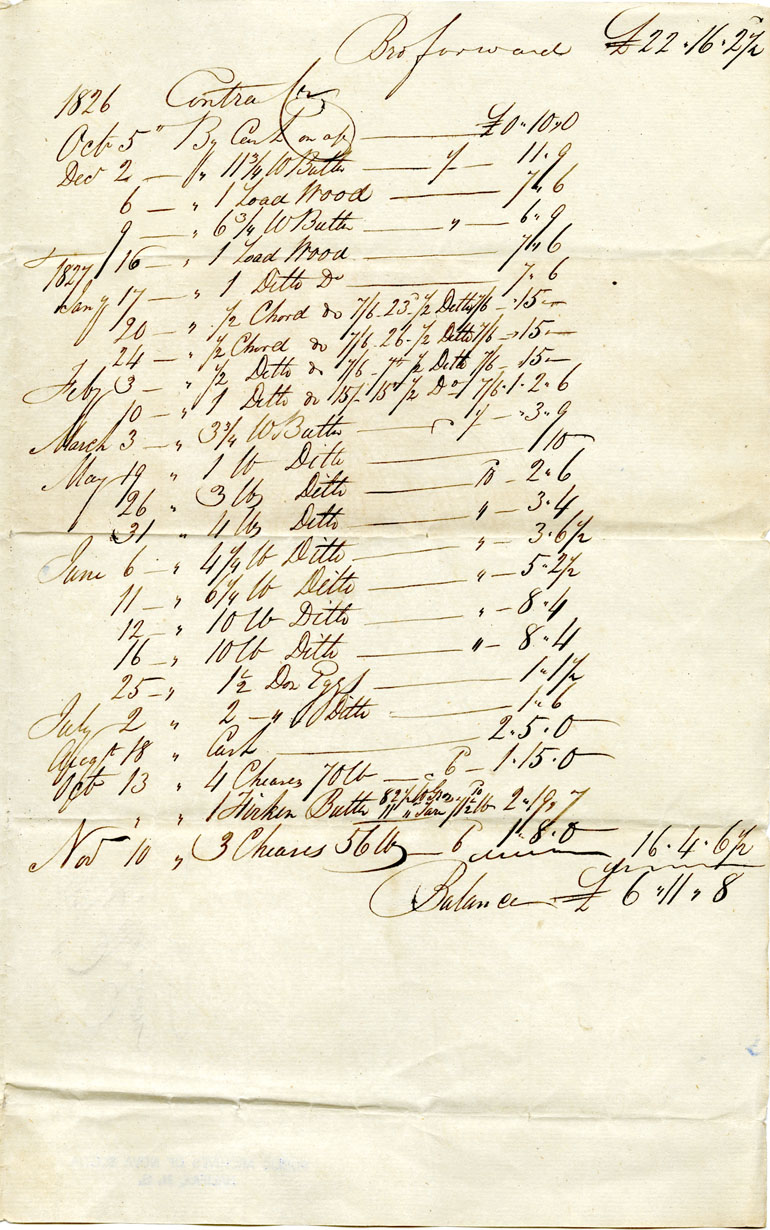 Bro forward £22 " 16 " 2½
1826 Contra Cr
Octr 5 " By Cash on a/c £0 " 10 " 0
Decr 2 — " 11¾ lb Butter 1/ — 11 " 9
6 — " 1 Load Wood 7 " 6
9 — " 6¾ lb Butter " — 6 " 9
16 — " 1 Load Wood 7 " 6
1827
Jany 17 — " 1 Ditto Do 7 " 6
20 — " ½ Chord do 7/6 - 23d ½ Ditto 7/6 - " 15 " —
24 — " ½ Chord do 7/6 - 26 - ½ Ditto 7/6 - " 15 " —
Feby 3 — " ½ Ditto do 7/6 - 7th ½ Ditto 7/6 - 15 " —
10 — " 1 Ditto do 15/- 15th ½ Do 7/6 - 1 " 2 " 6
March 3 — " 3¾ lb Butter 1/ — " 3 " 9
May 19 " 1 lb Ditto /10
26 " 3 lbs Ditto 10 — 2 " 6
31 " 4 lbs Ditto " — 3 " 4
June 6 — " 4¼ lb Ditto " — 3 " 6½
11 — " 6¼ lb Ditto " — 5 " 2½
12 — " 10 lb Ditto " — 8 " 4
16 — " 10 lb Ditto " — 8 " 4
25 — " 1½ Doz Eggs 1 " 1½
July 2 " 2 — " Ditto 1 " 6
Augt 18 " Cash 2 " 5 " 0
Octr 13 " 4 Cheases 70 lb — 6 — 1 " 15 " 0
" " 1 Firken Butter 82½ lb Gro. 11 " Tare 71½ lb 10 2 " 19 " 7
Nov 10 " 3 Cheases 56 lb — 6 1 " 8 " 0 16 " 4 " 6½
Balance £ 6 " 11 " 8